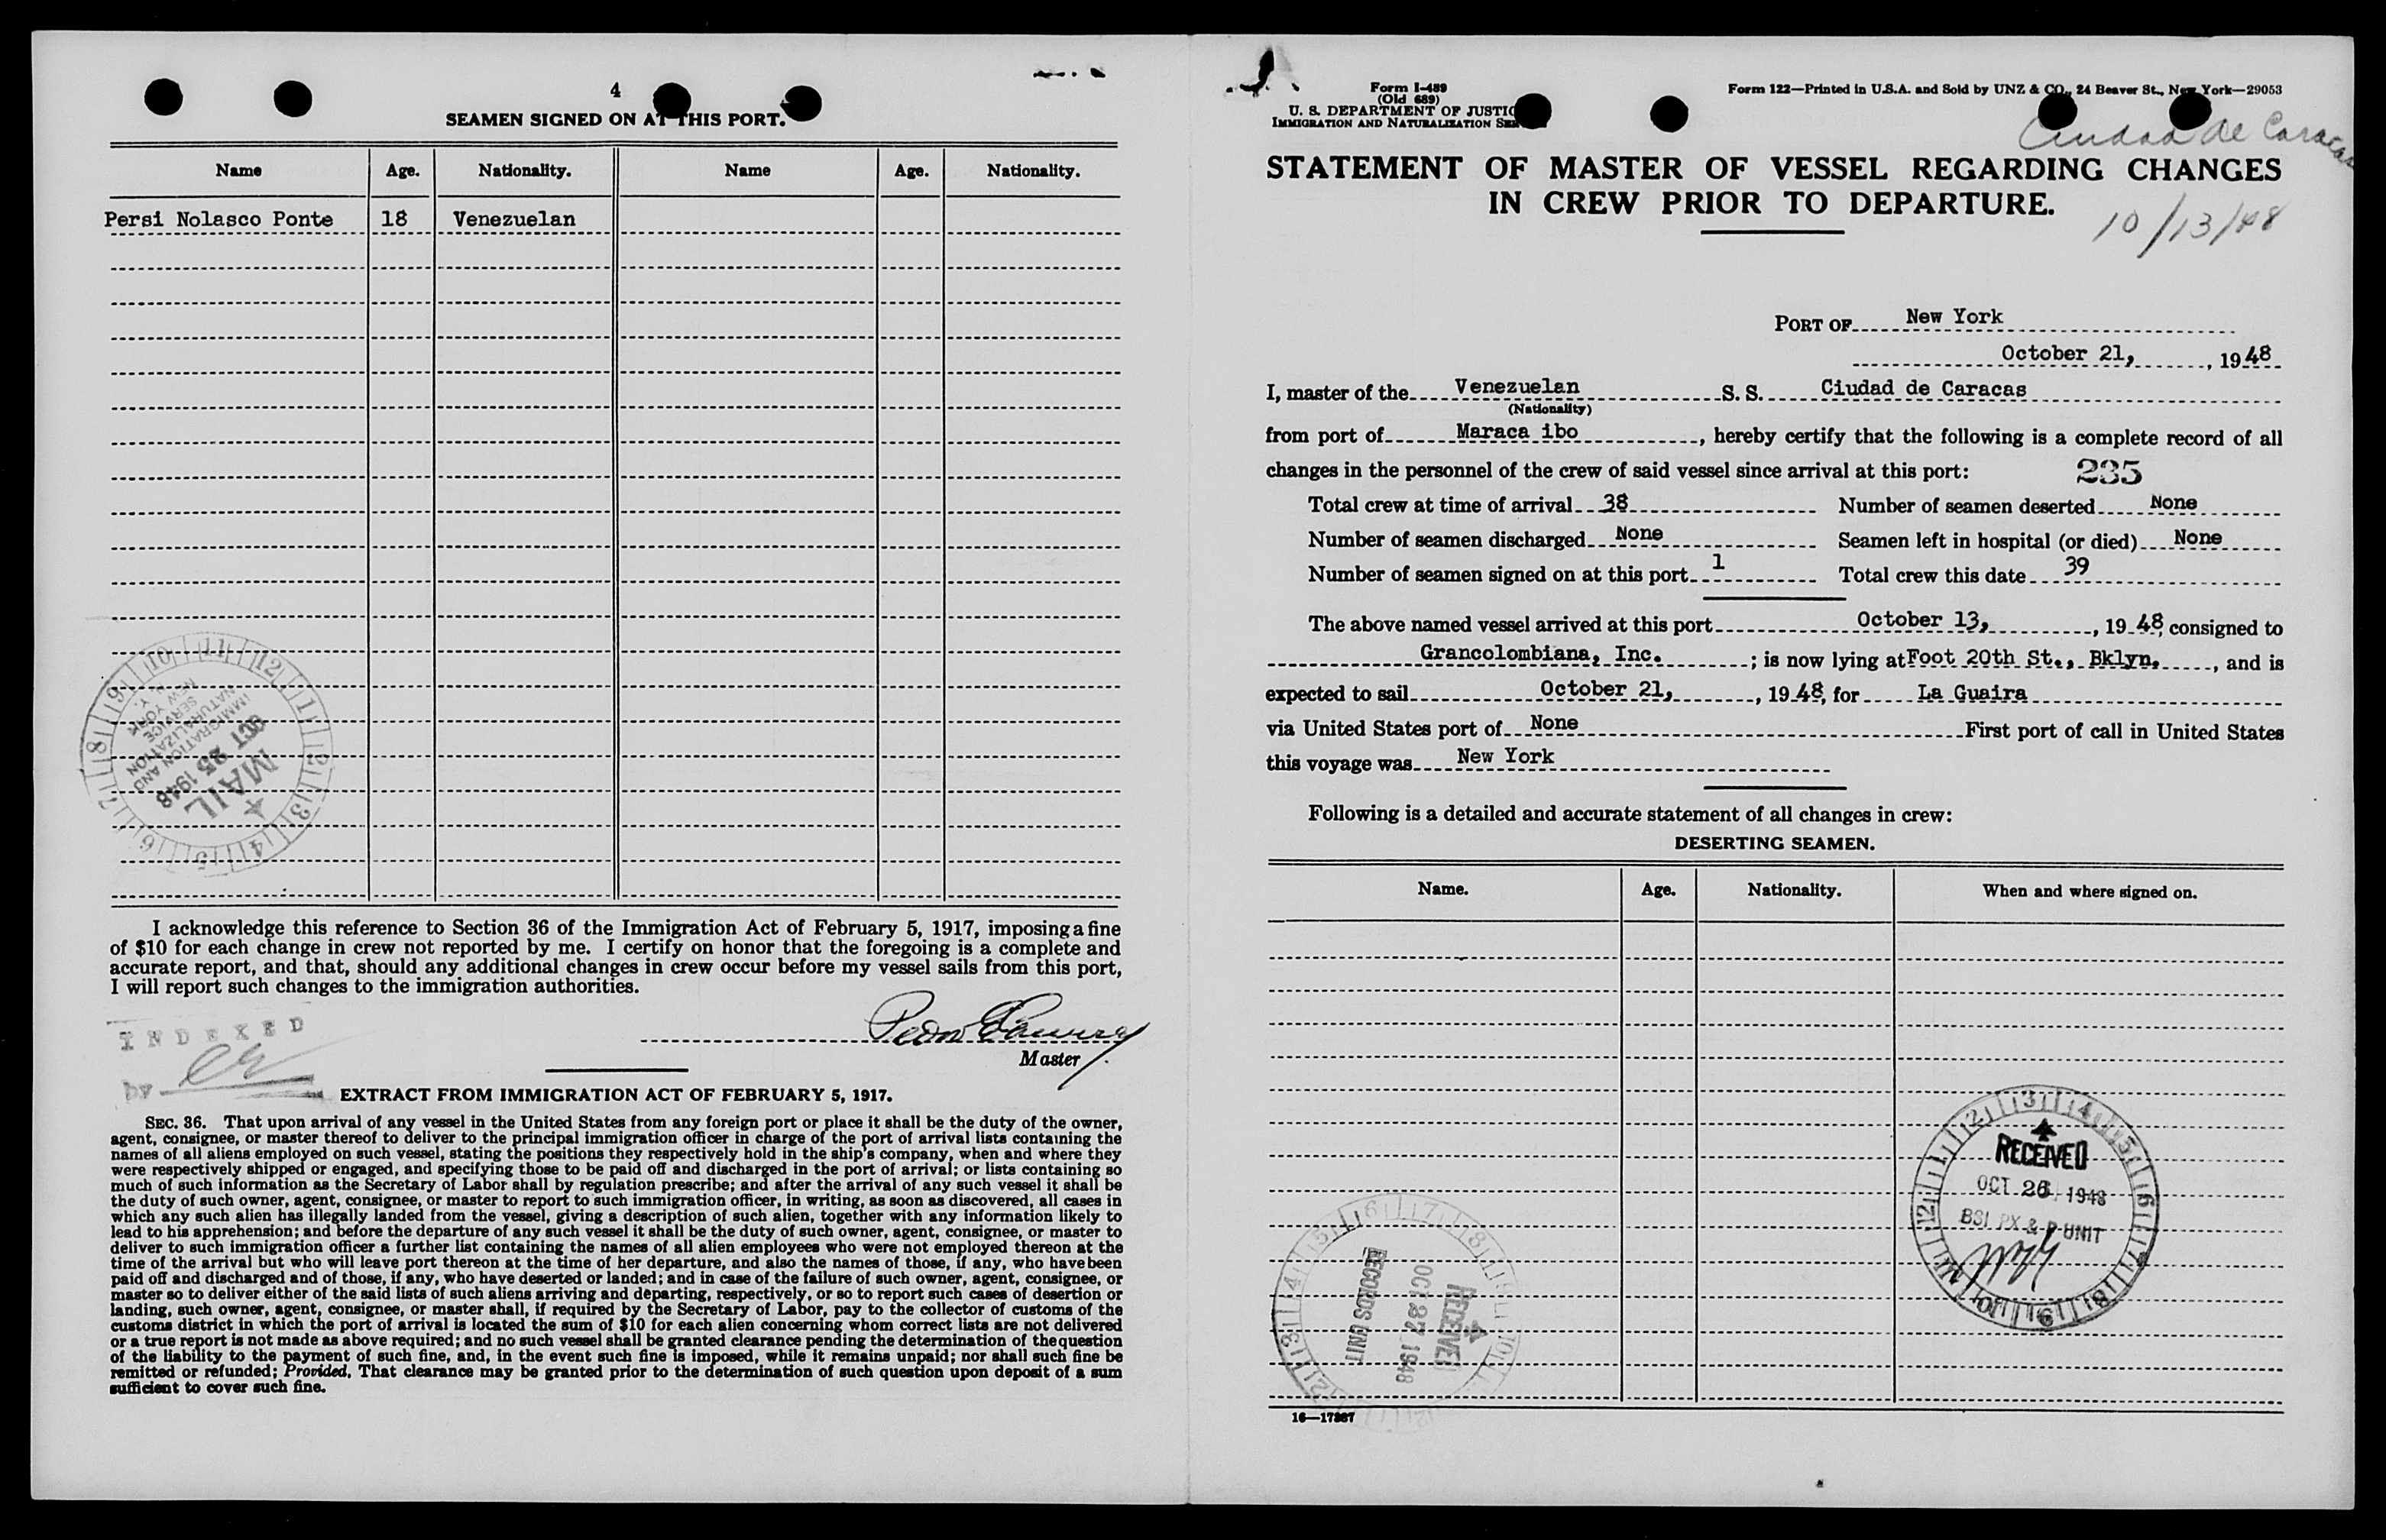 4
SEAMEN SIGNED ON AT THIS PORT.
Name Age. Nationality. Name Age. Nationality.
Persi Nolasco Ponte 18 Venezuelan
10 11 12 1 2 3 4 5 6 7 8 9
IMMIGRATION AND
NATURALIZATION
SERVICE
NEW YORK
N. Y.
OCT 25 1948
MAIL
I acknowledge this reference to Section 36 of the Immigration Act of February 5, 1917, imposing a fine
of $10 for each change in crew not reported by me. I certify on honor that the foregoing is a complete and
accurate report, and that, should any additional changes in crew occur before my vessel sails from this port,
I will report such changes to the immigration authorities.
INDEXED
by
Master
EXTRACT FROM IMMIGRATION ACT OF FEBRUARY 5, 1917.
SEC. 36. That upon arrival of any vessel in the United States from any foreign port or place it shall be the duty of the owner,
agent, consignee, or master thereof to deliver to the principal immigration officer in charge of the port of arrival lists containing the
names of all aliens employed on such vessel, stating the positions they respectively hold in the ship's company, when and where they
were respectively shipped or engaged, and specifying those to be paid off and discharged in the port of arrival; or lists containing so
much of such information as the Secretary of Labor shall by regulation prescribe; and after the arrival of any such vessel it shall be
the duty of such owner, agent, consignee, or master to report to such immigration officer, in writing, as soon as discovered, all cases in
which any such alien has illegally landed from the vessel, giving a description of such alien, together with any information likely to
lead to his apprehension; and before the departure of any such vessel it shall be the duty of such owner, agent, consignee, or master to
deliver to such immigration officer a further list containing the names of all alien employees who were not employed thereon at the
time of the arrival but who will leave port thereon at the time of her departure, and also the names of those, if any, who have been
paid off and discharged and of those, if any, who have deserted or landed; and in case of the failure of such owner, agent, consignee, or
master so to deliver either of the said lists of such aliens arriving and departing, respectively, or so to report such cases of desertion or
landing, such owner, agent, consignee, or master shall, if required by the Secretary of Labor, pay to the collector of customs of the
customs district in which the port of arrival is located the sum of $10 for each alien concerning whom correct lists are not delivered
or a true report is not made as above required; and no such vessel shall be granted clearance pending the determination of the question
of the liability to the payment of such fine, and, in the event such fine is imposed, while it remains unpaid; nor shall such fine be
remitted or refunded; Provided, That clearance may be granted prior to the determination of such question upon deposit of a sum
sufficient to cover such fine.
Form I-489
(Old 689)
U. S. DEPARTMENT OF JUSTIC
IMMIGRATION AND NATURALIZATION SER
Form 122—Printed in U.S.A. and Sold by UNZ & CO., 24 Beaver St., New York—29053
Ciudad de Caracas
STATEMENT OF MASTER OF VESSEL REGARDING CHANGES
IN CREW PRIOR TO DEPARTURE.
10/13/48
PORT OF New York
October 21, , 1948
I, master of the Venezuelan S. S. Ciudad de Caracas
(Nationality)
from port of Maraca ibo , hereby certify that the following is a complete record of all
changes in the personnel of the crew of said vessel since arrival at this port: 235
Total crew at time of arrival 38 Number of seamen deserted None
Number of seamen discharged None Seamen left in hospital (or died) None
Number of seamen signed on at this port 1 Total crew this date 39
The above named vessel arrived at this port October 13, , 1948, consigned to
Grancolombiana, Inc. ; is now lying at Foot 20th St., Bklyn. , and is
expected to sail October 21, , 1948, for La Guaira
via United States port of None First port of call in United States
this voyage was New York
Following is a detailed and accurate statement of all changes in crew:
DESERTING SEAMEN.
Name. Age. Nationality. When and where signed on.
RECEIVED
OCT 26 1948
BSI PX & P UNIT
RECEIVED
OCT 27 1948
RECORDS UNIT
16—17887